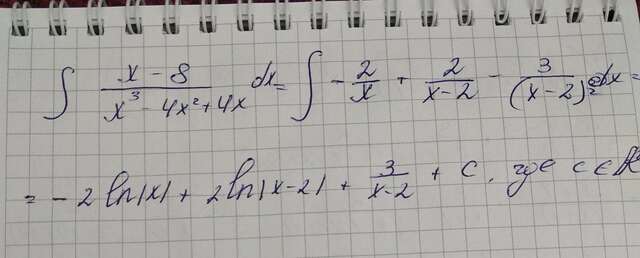 ∫ (x - 8)/(x³ - 4x² + 4x) dx = ∫ - 2/x + 2/(x-2) - 3/(x-2)² dx =
= - 2 ln|x| + 2 ln|x-2| + 3/(x-2) + C, где C ∈ ℝ